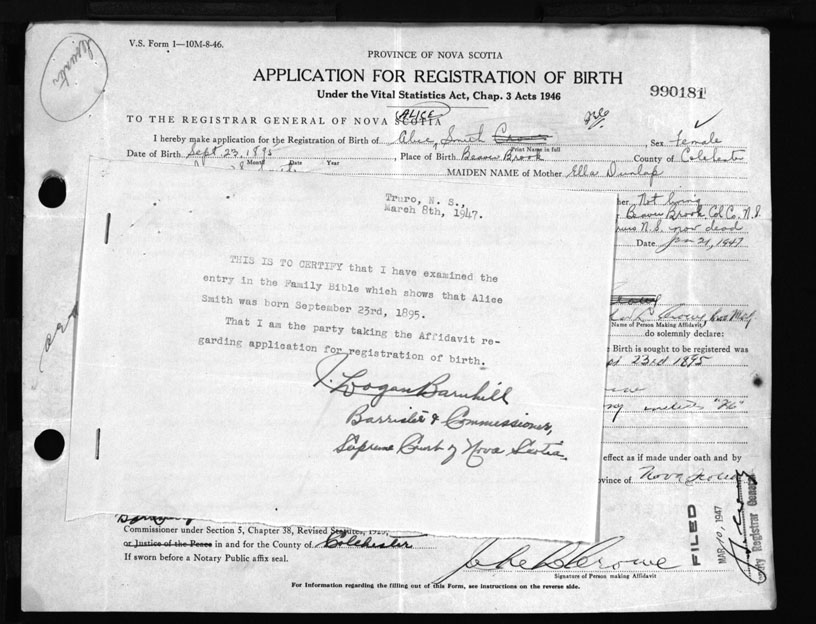 V.S. Form 1—10M-8-46.
PROVINCE OF NOVA SCOTIA
APPLICATION FOR REGISTRATION OF BIRTH
990181
Under the Vital Statistics Act, Chap. 3 Acts 1946
ALICE
TO THE REGISTRAR GENERAL OF NOVA SCOTIA
I hereby make application for the Registration of Birth of Alice Smith Crowe, Sex Female
Print Name in full
Date of Birth Sept 23, 1895, Place of Birth Beaver Brook County of Colchester
Month Date Year
MAIDEN NAME of Mother Ella Dunlap
her Not living
Beaver Brook, Col. Co. N.S.
N.S. now dead
Date Jan 21, 1947
Truro, N. S.,
March 8th, 1947.
THIS IS TO CERTIFY that I have examined the
entry in the Family Bible which shows that Alice
Smith was born September 23rd, 1895.
That I am the party taking the Affidavit re-
garding application for registration of birth.
J. Logan Barnhill
Barrister & Commissioner,
Supreme Court of Nova Scotia.
Crowe
Name of Person Making Affidavit
do solemnly declare:
Birth is sought to be registered was
23rd 1895
effect as if made under oath and by
vince of Nova Scotia
Commissioner under Section 5, Chapter 38, Revised Statutes, 1923,
or Justice of the Peace in and for the County of Colchester
If sworn before a Notary Public affix seal.
Crowe
Signature of Person making Affidavit
FILED
MAR 10, 1947
ty Registrar General
For Information regarding the filling out of this Form, see instructions on the reverse side.